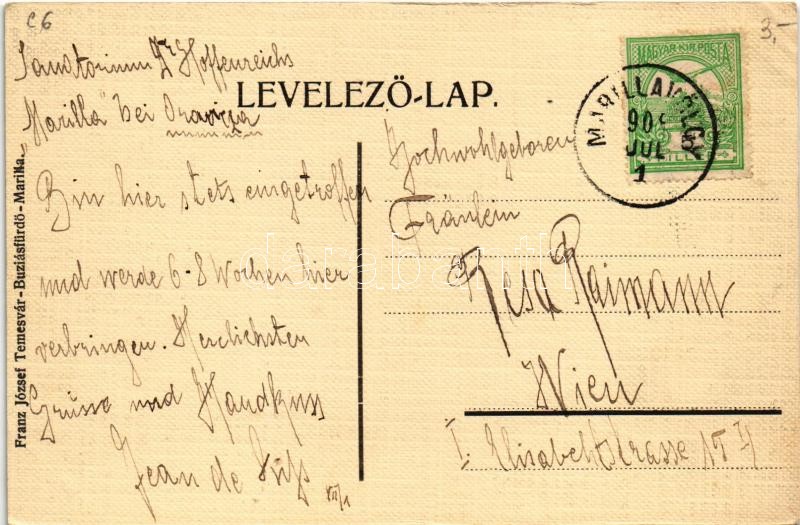 C6
3,-
Sanatorium Dr Hoffenreichs
"Marilla" bei Oravicza
LEVELEZŐ-LAP.
MAGYAR KIR. POSTA
MARILLAVÖLGY
JUL
1
Bin hier stets eingetroffen
und werde 6-8 Wochen hier
verbringen. Herzlichsten
Grüsse und Handkuss
Jean de
VII/1
Hochwohlgeboren
Fräulein
Resa Raimann
Wien
I. Elisabethstrasse 15
Franz József Temesvár - Buziásfürdő - Marilla.
darabanth